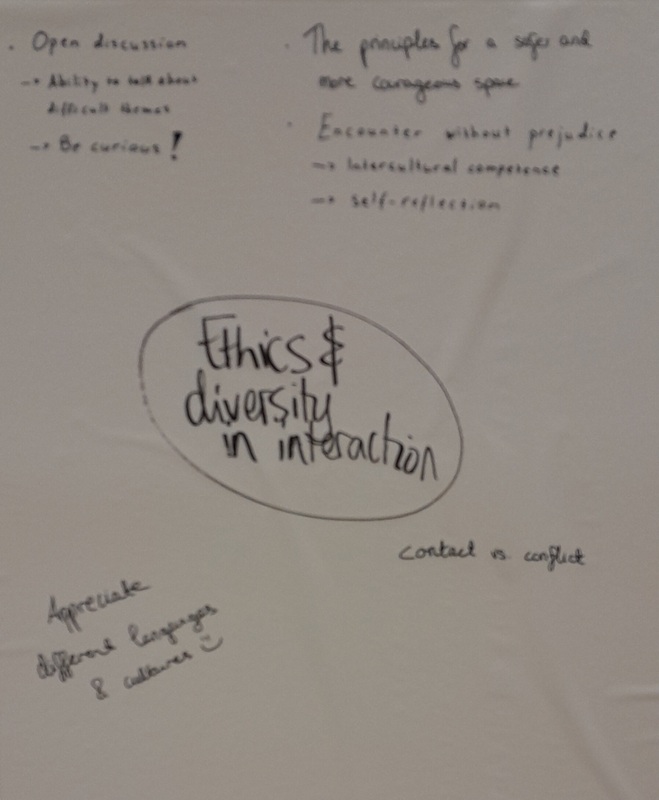 · Open discussion
→ Ability to talk about
difficult themes
→ Be curious!
· The principles for a safer and
more courageous space
· Encounter without prejudice
→ Intercultural competence
→ self-reflection
Ethics &
diversity
in interaction
Contact vs. conflict
Appreciate
different languages
& cultures ☺